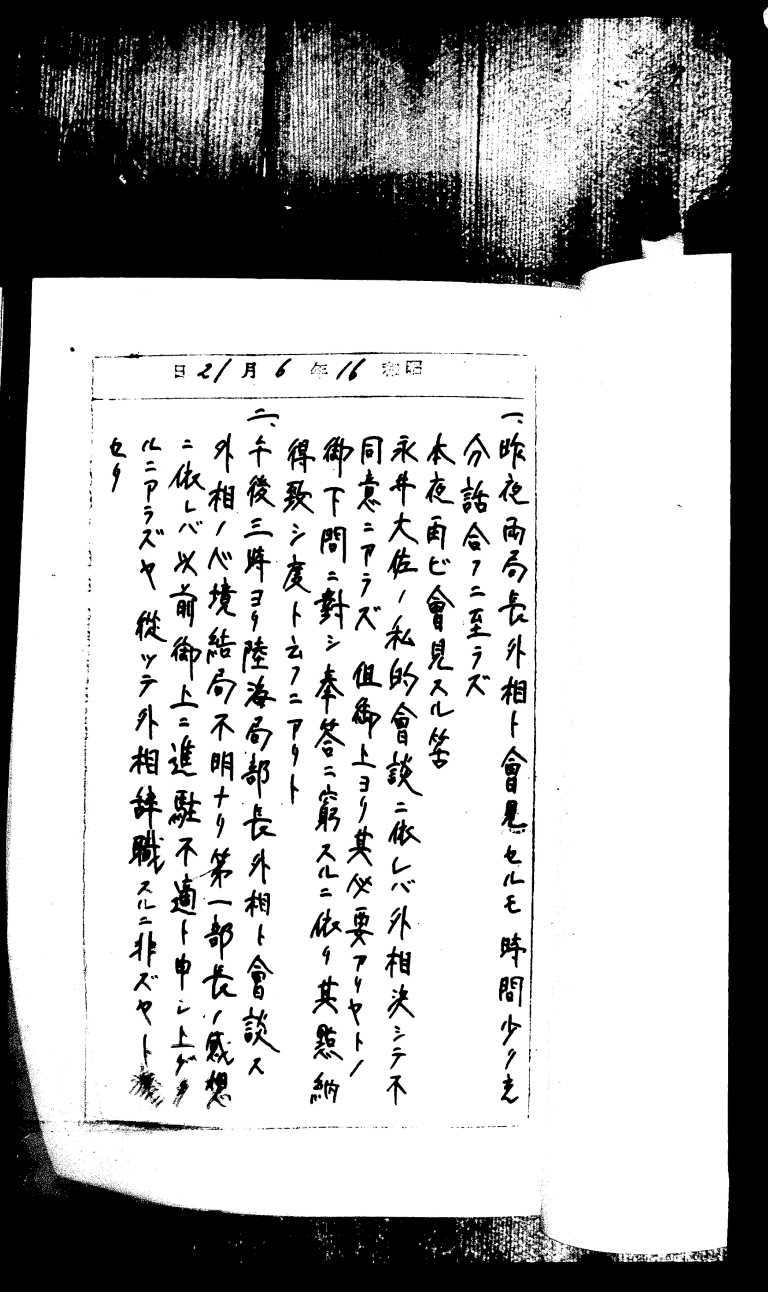 昭和16年6月21日
一、昨夜両局長外相ト會見セルモ時間少ク充
分話合フニ至ラズ
本夜再ビ會見スル筈
永井大佐ノ私的會談ニ依レバ外相決シテ不
同意ニアラズ 但御上ヨリ其必要アリヤトノ
御下問ニ對シ奉答ニ窮スルニ依リ其點納
得致シ度ト云フニアリト
二、午後三時ヨリ陸海局部長外相ト會談ス
外相ノ心境結局不明ナリ第一部長ノ感想
ニ依レバ以前御上ニ進駐不適ト申シ上ゲタ
ルニアラズヤ 從ツテ外相辞職スルニ非ズヤト
セリ